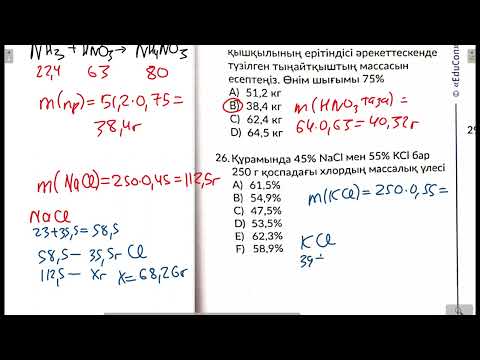 NH3 + HNO3 → NH4NO3
22,4 63 80
m(пр)=51,2·0,75=
38,4г
m(NaCl)=250·0,45=112,5г
NaCl
23+35,5=58,5
58,5 — 35,5г Cl
112,5 — Xг X=68,26г
қышқылының ерітіндісі әрекеттескенде
түзілген тыңайтқыштың массасын
есептеңіз. Өнім шығымы 75%
A) 51,2 кг
B) 38,4 кг
C) 62,4 кг
D) 64,5 кг
m(HNO3 таза)=
64·0,63=40,32г
26. Құрамында 45% NaCl мен 55% KCl бар
250 г қоспадағы хлордың массалық үлесі
A) 61,5%
B) 54,9%
C) 47,5%
D) 53,5%
E) 62,3%
F) 58,9%
m(KCl)=250·0,55=
KCl
39+
© «EduCon
29